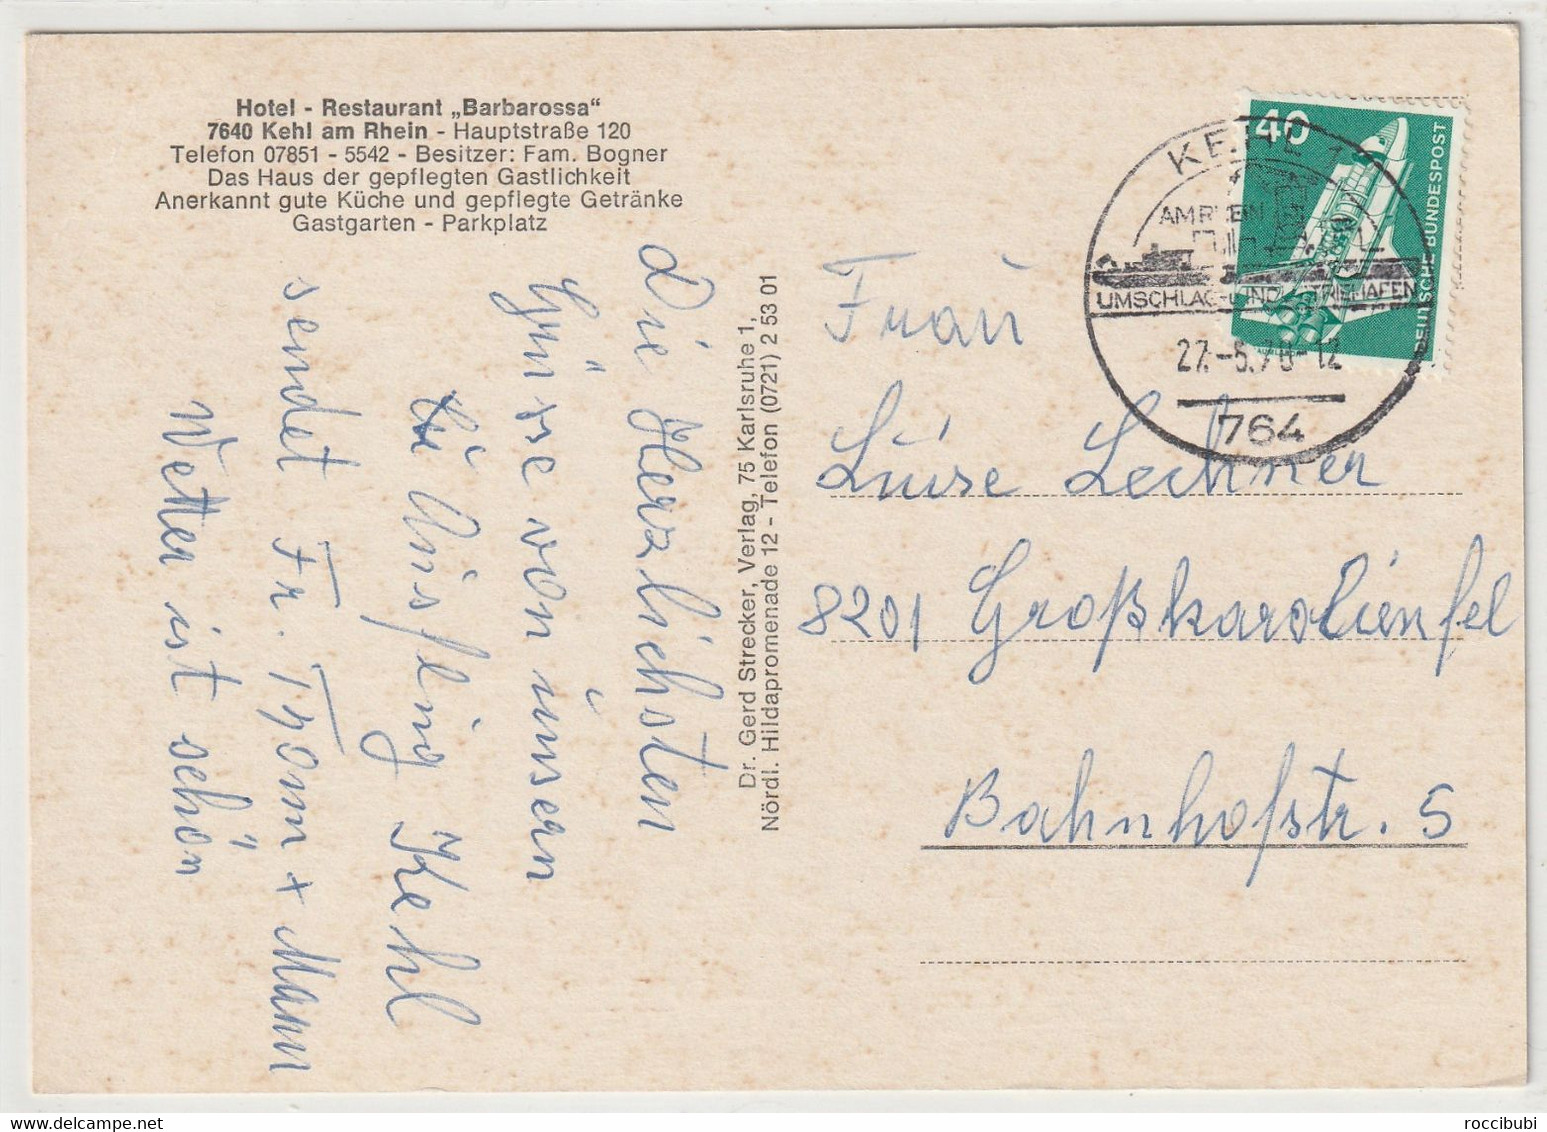 Hotel - Restaurant „Barbarossa“
7640 Kehl am Rhein - Hauptstraße 120
Telefon 07851 - 5542 - Besitzer: Fam. Bogner
Das Haus der gepflegten Gastlichkeit
Anerkannt gute Küche und gepflegte Getränke
Gastgarten - Parkplatz
Die Herzlichsten
Grüsse von unsern
Ausflug Kehl
sendet Fr. Thom + Mann
Wetter ist schön
Dr. Gerd Strecker, Verlag, 75 Karlsruhe 1,
Nördl. Hildapromenade 12 - Telefon (0721) 2 53 01
40
DEUTSCHE BUNDESPOST
KEHL 1
AM RHEIN
UMSCHLAG-UND INDUSTRIEHAFEN
764
Frau
Luise Lechner
8201 Großkarolienfel
Bahnhofstr. 5
roccibubi